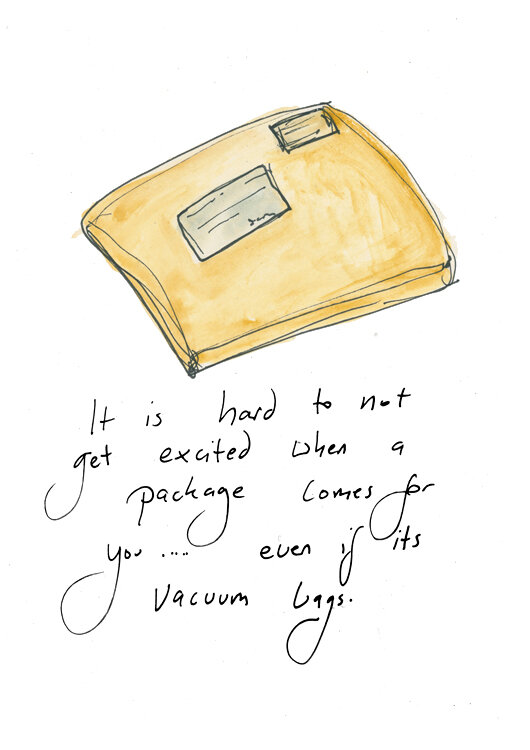 It is hard to not
get excited when a
package comes for
you .... even if its
vacuum bags.